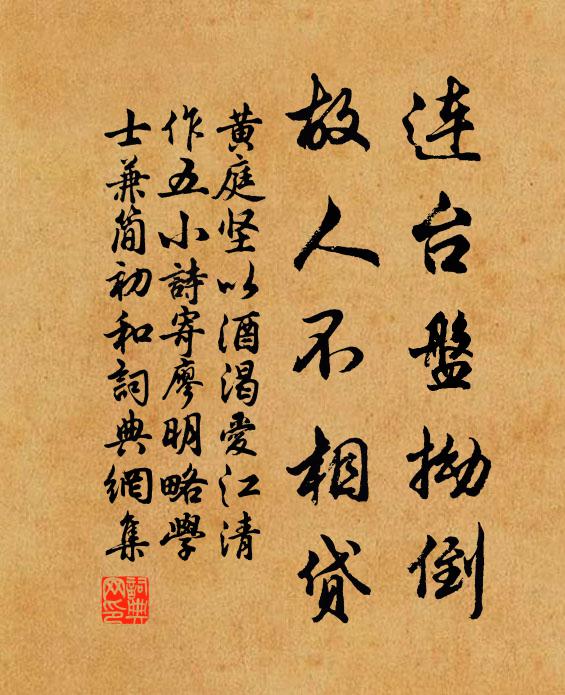 连台盤拗倒
故人不相貸
黄庭坚以酒渴爱江清
作五小詩寄廖明略學
士兼简初和詞典網集
詞典网印